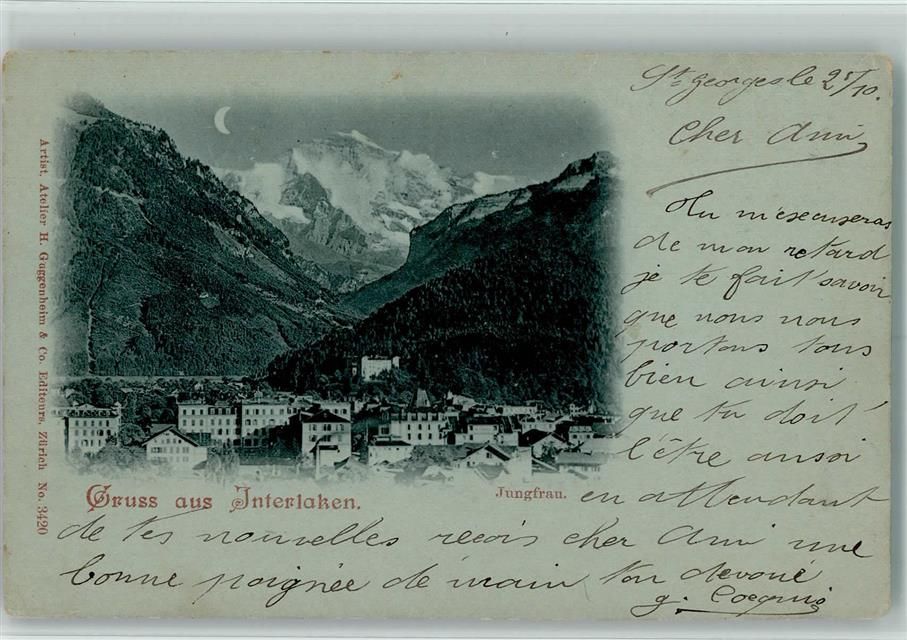 St Georges le 25/10.
Cher Ami
Tu m'excuseras
de mon retard
je te fait savoir
que nous nous
portons tous
bien ainsi
que tu doit
l'être aussi
en attendant
de tes nouvelles recois cher Ami une
bonne poignée de main ton devoué
g.
Gruss aus Interlaken.
Jungfrau.
Artist. Atelier H. Guggenheim & Co. Editeurs, Zürich No. 3420